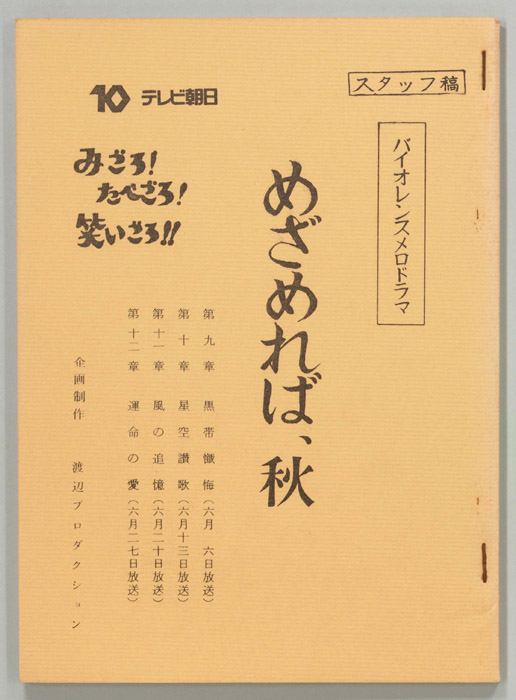 スタッフ稿
10 テレビ朝日
バイオレンスメロドラマ
めざめれば、秋
みざろ!
たべざろ!
笑いざろ!!
第九章 黒帯懺悔(六月 六日放送)
第十章 星空讃歌(六月十三日放送)
第十一章 風の追憶(六月二十日放送)
第十二章 運命の愛(六月二七日放送)
企画制作 渡辺プロダクション